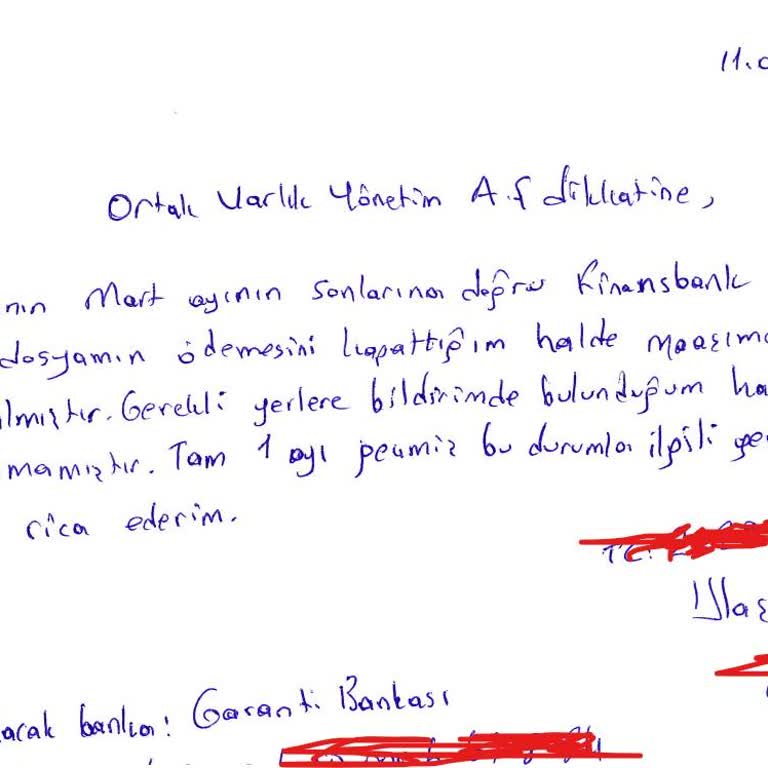 11.0
Ortak Varlık Yönetim A.Ş dikkatine,
nın Mart ayının sonlarına doğru Finansbank
dosyamın ödemesini kapattığım halde maaşıma
lmıştır. Gerekli yerlere bildirimde bulunduğum ha
mamıştır. Tam 1 ayı geçmiş bu durumla ilgili ge
rica ederim.
TC:
Ulaş
acak banka: Garanti Bankası